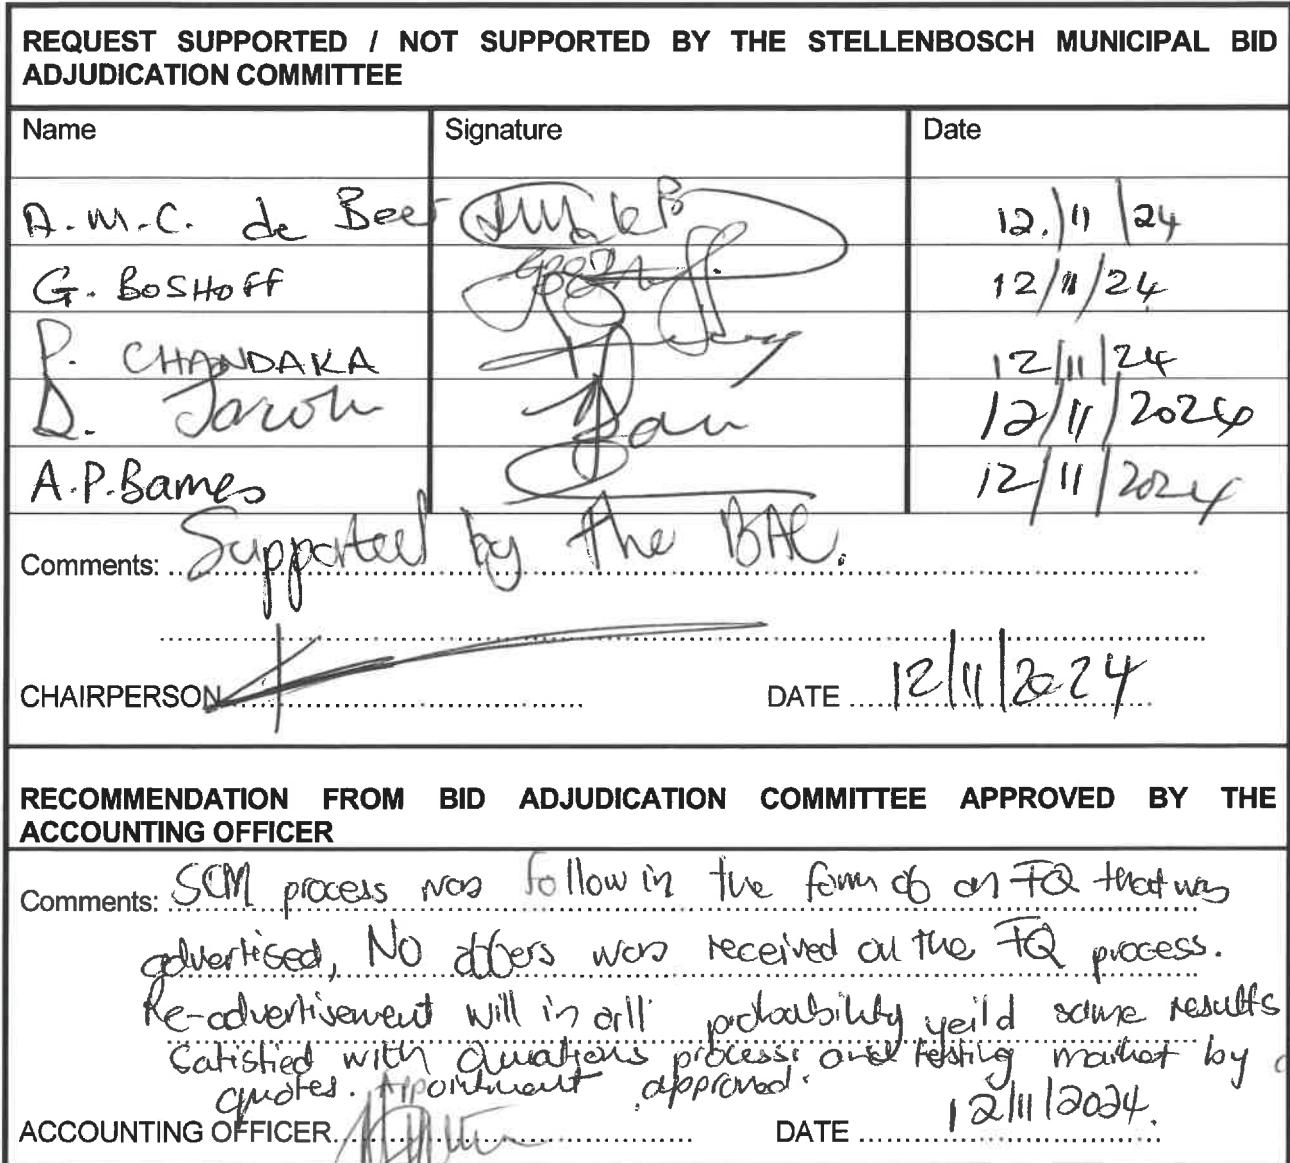 REQUEST SUPPORTED / NOT SUPPORTED BY THE STELLENBOSCH MUNICIPAL BID
ADJUDICATION COMMITTEE
Name Signature Date
A.M.C. de Beer 12/11/24
G. BOSHOFF 12/11/24
P. CHANDAKA 12/11/24
D. 12/11/2024
A.P. Barnes 12/11/2024
Comments: Supported by the BAC.
CHAIRPERSON DATE 12/11/2024
RECOMMENDATION FROM BID ADJUDICATION COMMITTEE APPROVED BY THE
ACCOUNTING OFFICER
Comments: SCM process was follow in the form of an FQ that was
advertised, No offers was received on the FQ process.
Re-advertisement will in all probability yeild same results
Satisfied with process and testing market by
quotes. Appointment approved.
ACCOUNTING OFFICER DATE 12/11/2024.